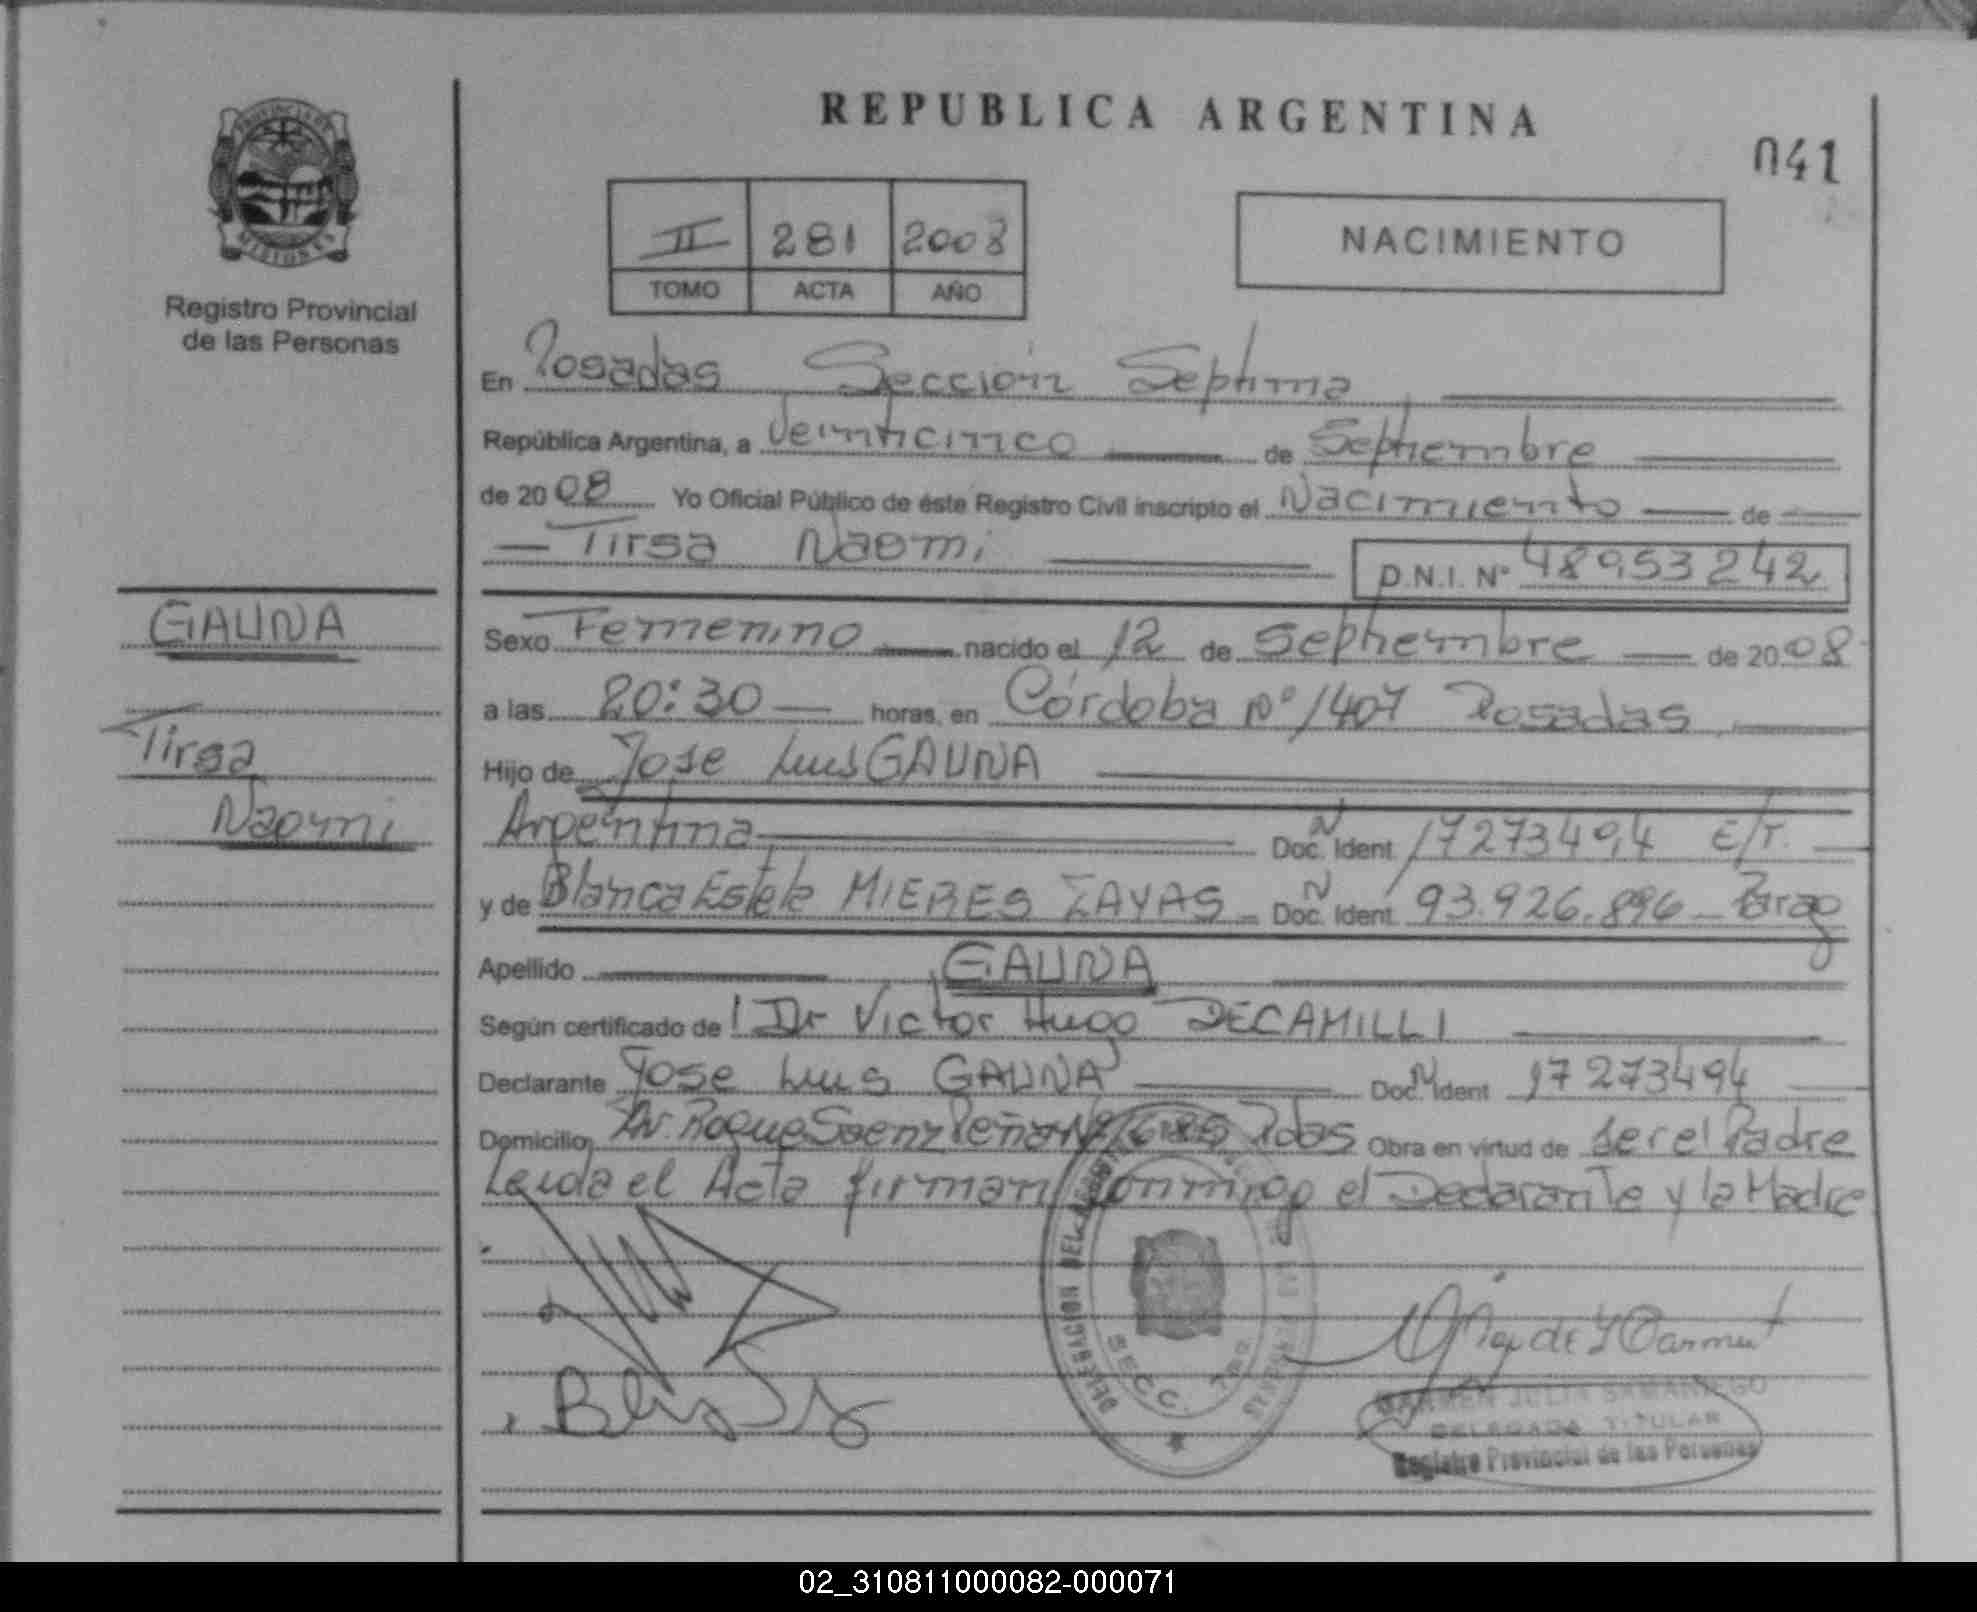 REPUBLICA ARGENTINA
041
PROVINCIA DE MISIONES
Registro Provincial
de las Personas
II 281 2008
TOMO ACTA AÑO
NACIMIENTO
En Posadas Sección Septima
República Argentina, a Veinticinco de Septiembre
de 20 08 Yo Oficial Público de éste Registro Civil inscripto el Nacimiento de
Tirsa Naomi D.N.I. Nº 48953242
GAUNA
Tirsa
Naomi
Sexo Femenino nacido el 12 de Septiembre de 20 08
a las 20:30 horas, en Córdoba Nº 1407 Posadas
Hijo de Jose Luis GAUNA
Argentina Doc. Ident. N 17273494 E/T.
y de Blanca Estela MIERES ZAYAS Doc. Ident. N 93.926.896
Apellido GAUNA
Según certificado de l Dr Victor Hugo DECAMILLI
Declarante Jose Luis GAUNA Doc. Ident N 17273494
Domicilio Av. Roque Saenz Peña Nº Pdas Obra en virtud de ser el Padre
Leida el Acta firman conmigo el Declarante y la Madre
DELEGACION DEL
SECC. 7ma
CARMEN JULIA SAMANIEGO
DELEGADA TITULAR
Registro Provincial de las Personas
02_310811000082-000071